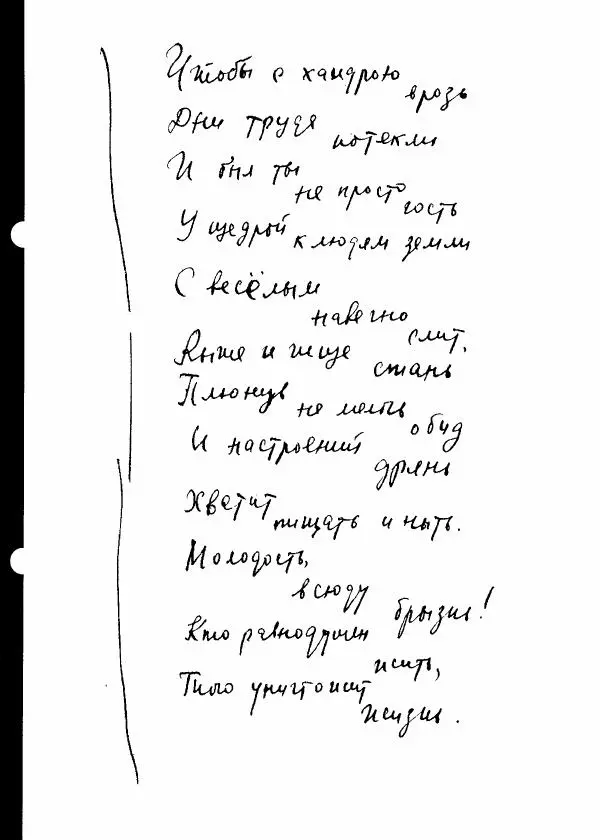 Чтобы с хандрою
врозь
Дни труда
потекли
И был ты
не просто
гость
У щедрой
к людям земли
С весёлым
навечно
слит,
Выше и чище
стань
Плюнув
на мелочь
обид
И настроений
дрянь
Хватит
пищать и ныть.
Молодость,
всюду
брызни!
Кто равнодушен
жить,
Тило уничтожит
жизнь.